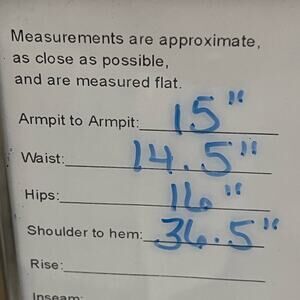 Measurements are approximate,
as close as possible,
and are measured flat.
Armpit to Armpit: 15"
Waist: 14.5"
Hips: 16"
Shoulder to hem: 36.5"
Rise:
Inseam: